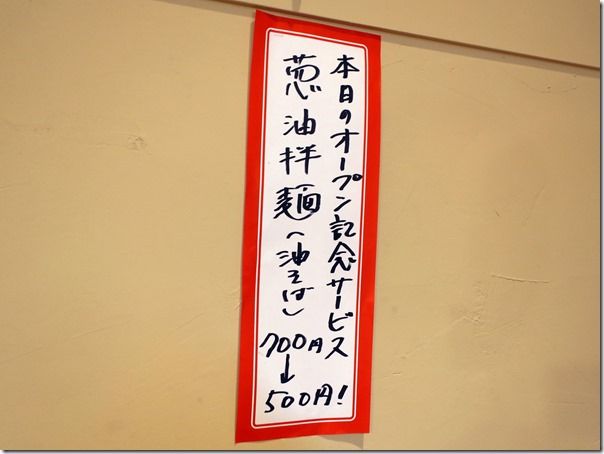 本日のオープン記念サービス
葱油拌麺(油そば)
700円
↓
500円!